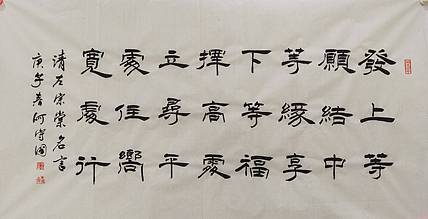 發上等
願結中
等緣享
下等福
擇高處
立尋平
處住嚮
寬處行
清左宗棠名言
庚子春